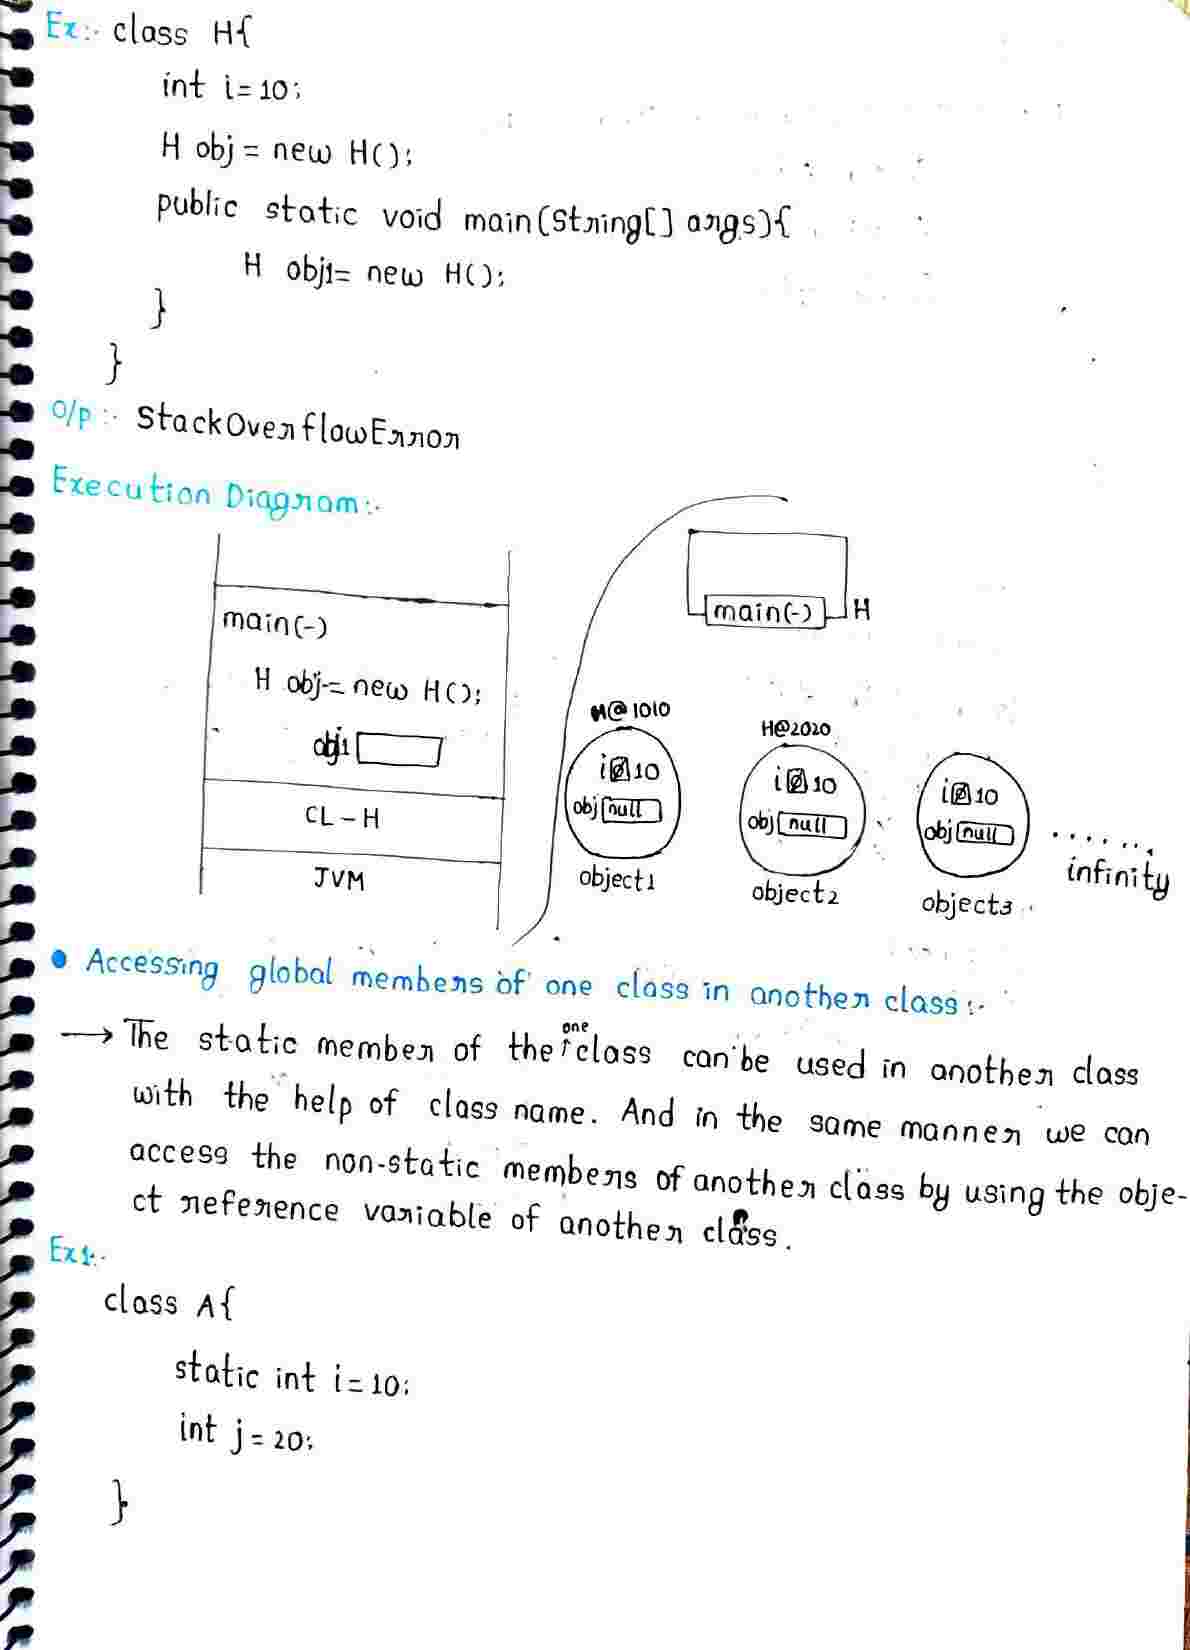 Ex:- class H{
int i=10;
H obj = new H();
public static void main(String[] args){
H obj1= new H();
}
}
O/p :- StackOverflowError
Execution Diagram:-
main(-)
H obj-= new H();
obj1
CL-H
JVM
main(-) H
H@1010
i 0 10
obj null
object1
H@2020
i 0 10
obj null
object2
i 0 10
obj null
object3
.......
infinity
• Accessing global members of one class in another class:-
→ The static member of the one class can be used in another class
with the help of class name. And in the same manner we can
access the non-static members of another class by using the obje-
ct reference variable of another class.
Ex1:-
class A{
static int i=10;
int j=20;
}